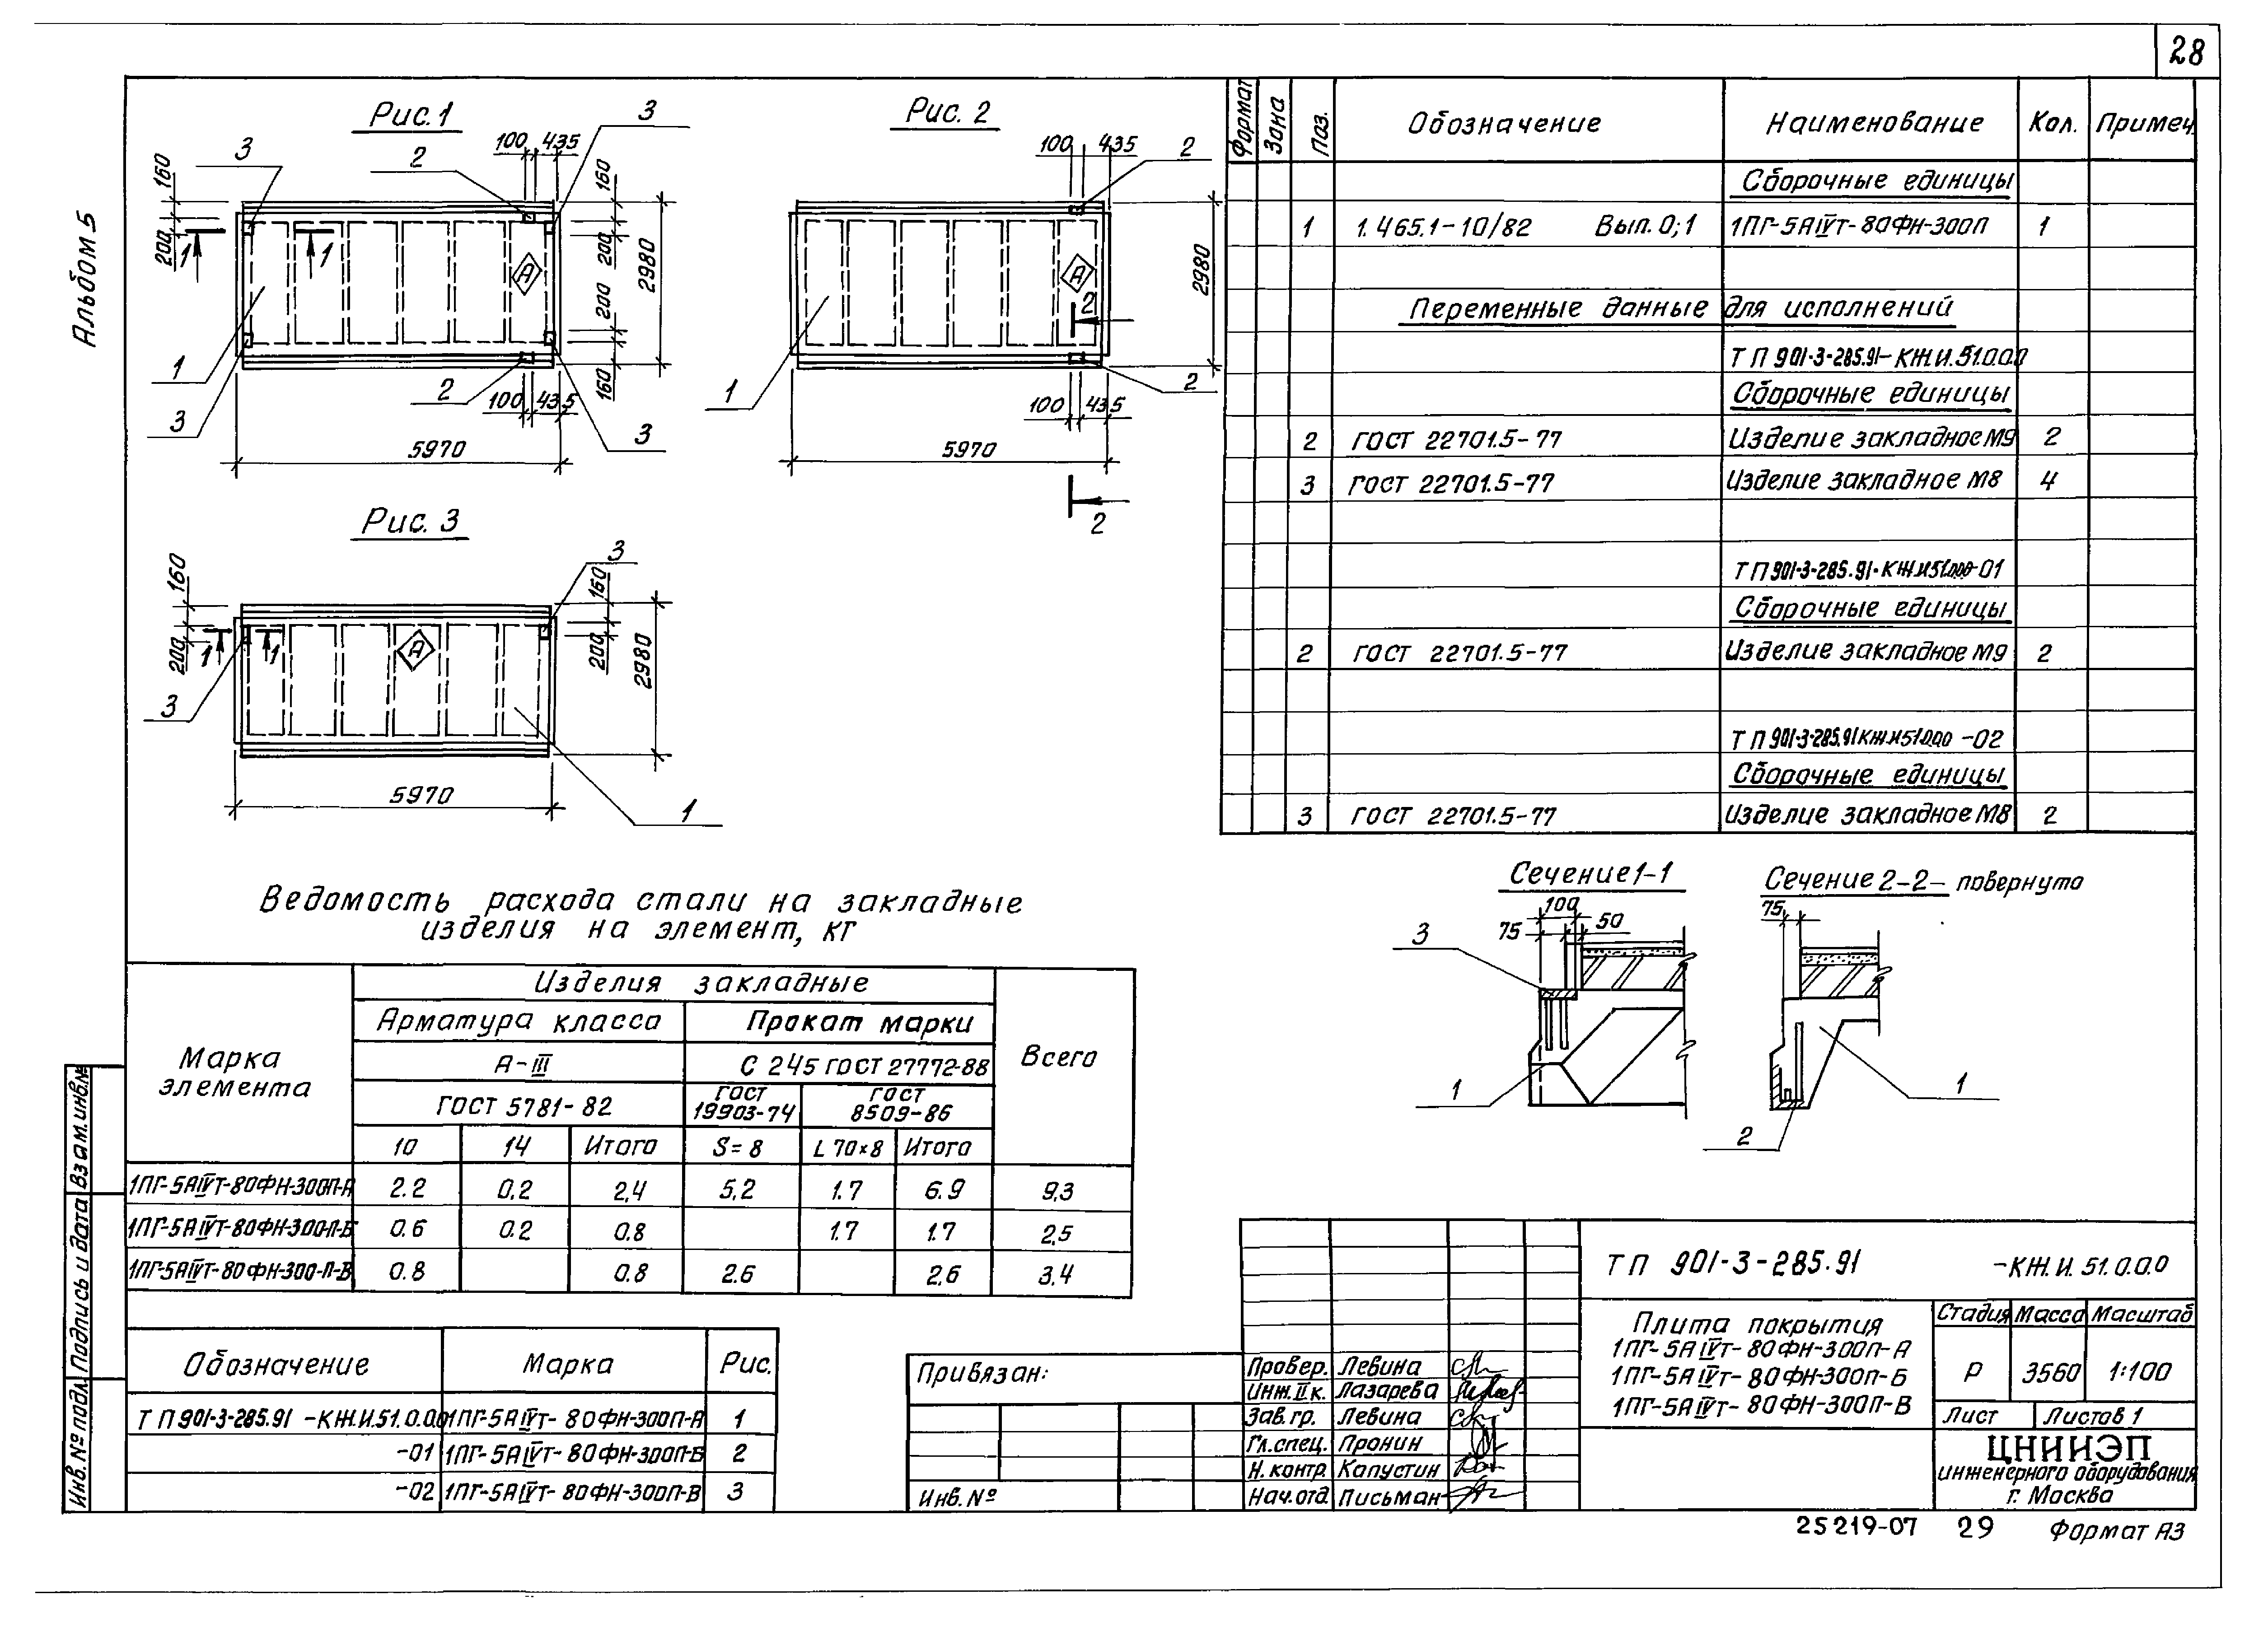 28
Альбом 5
Рис. 1
3
3
2
100
435
160
200
160
200
200
160
2980
1
1
А
1
3
2
100
435
3
5970
Рис. 2
100
435
2
А
2980
2
1
2
100
435
5970
2
Рис. 3
3
160
200
160
200
2980
1
1
А
3
5970
1
Формат
Зона
Поз.
Обозначение
Наименование
Кол.
Примеч.
Сборочные единицы
1 1.465.1-10/82 Вып. 0;1 1ПГ-5АIVт-80ФН-300П 1
Переменные данные для исполнений
ТП 901-3-285.91-КЖ.И.51.0.0.0
Сборочные единицы
2 ГОСТ 22701.5-77 Изделие закладное М9 2
3 ГОСТ 22701.5-77 Изделие закладное М8 4
ТП 901-3-285.91-КЖ.И51.0.0.0-01
Сборочные единицы
2 ГОСТ 22701.5-77 Изделие закладное М9 2
ТП 901-3-285.91КЖ.И51.0.0.0 -02
Сборочные единицы
3 ГОСТ 22701.5-77 Изделие закладное М8 2
Сечение 1-1
100
75
50
3
1
Сечение 2-2- повернуто
75
1
2
Ведомость расхода стали на закладные
изделия на элемент, кг
Марка
элемента
Изделия закладные
Всего
Арматура класса
Прокат марки
А-III
С 245 ГОСТ 27772-88
ГОСТ 5781-82
ГОСТ
19903-74
ГОСТ
8509-86
10 14 Итого S=8 L 70×8 Итого
1ПГ-5АIVт-80ФН-300П-А 2.2 0,2 2,4 5,2 1.7 6.9 9,3
1ПГ-5АIVт-80ФН-300-П-Б 0.6 0.2 0.8 1.7 1.7 2,5
1ПГ-5АIVт-80ФН-300-П-В 0.8 0.8 2.6 2,6 3.4
Обозначение Марка Рис.
ТП 901-3-285.91 -КЖ.И.51.0.0.0 1ПГ-5АIVт-80ФН-300П-А 1
-01 1ПГ-5АIVт-80ФН-300П-Б 2
-02 1ПГ-5АIVт-80ФН-300П-В 3
Привязан:
Инв. №
Провер. Левина
Инж. II к. Лазарева
Зав. гр. Левина
Гл. спец. Пронин
Н. контр. Капустин
Нач. отд. Письман
ТП 901-3-285.91 -КЖ.И.51.0.0.0
Плита покрытия
1ПГ-5АIVт-80ФН-300П-А
1ПГ-5АIVт-80ФН-300П-Б
1ПГ-5АIVт-80ФН-300П-В
Стадия Масса Масштаб
Р 3560 1:100
Лист Листов 1
ЦНИИЭП
инженерного оборудования
г. Москва
Взам. инв. №
Подпись и дата
Инв. № подл.
25219-07 29 Формат А3